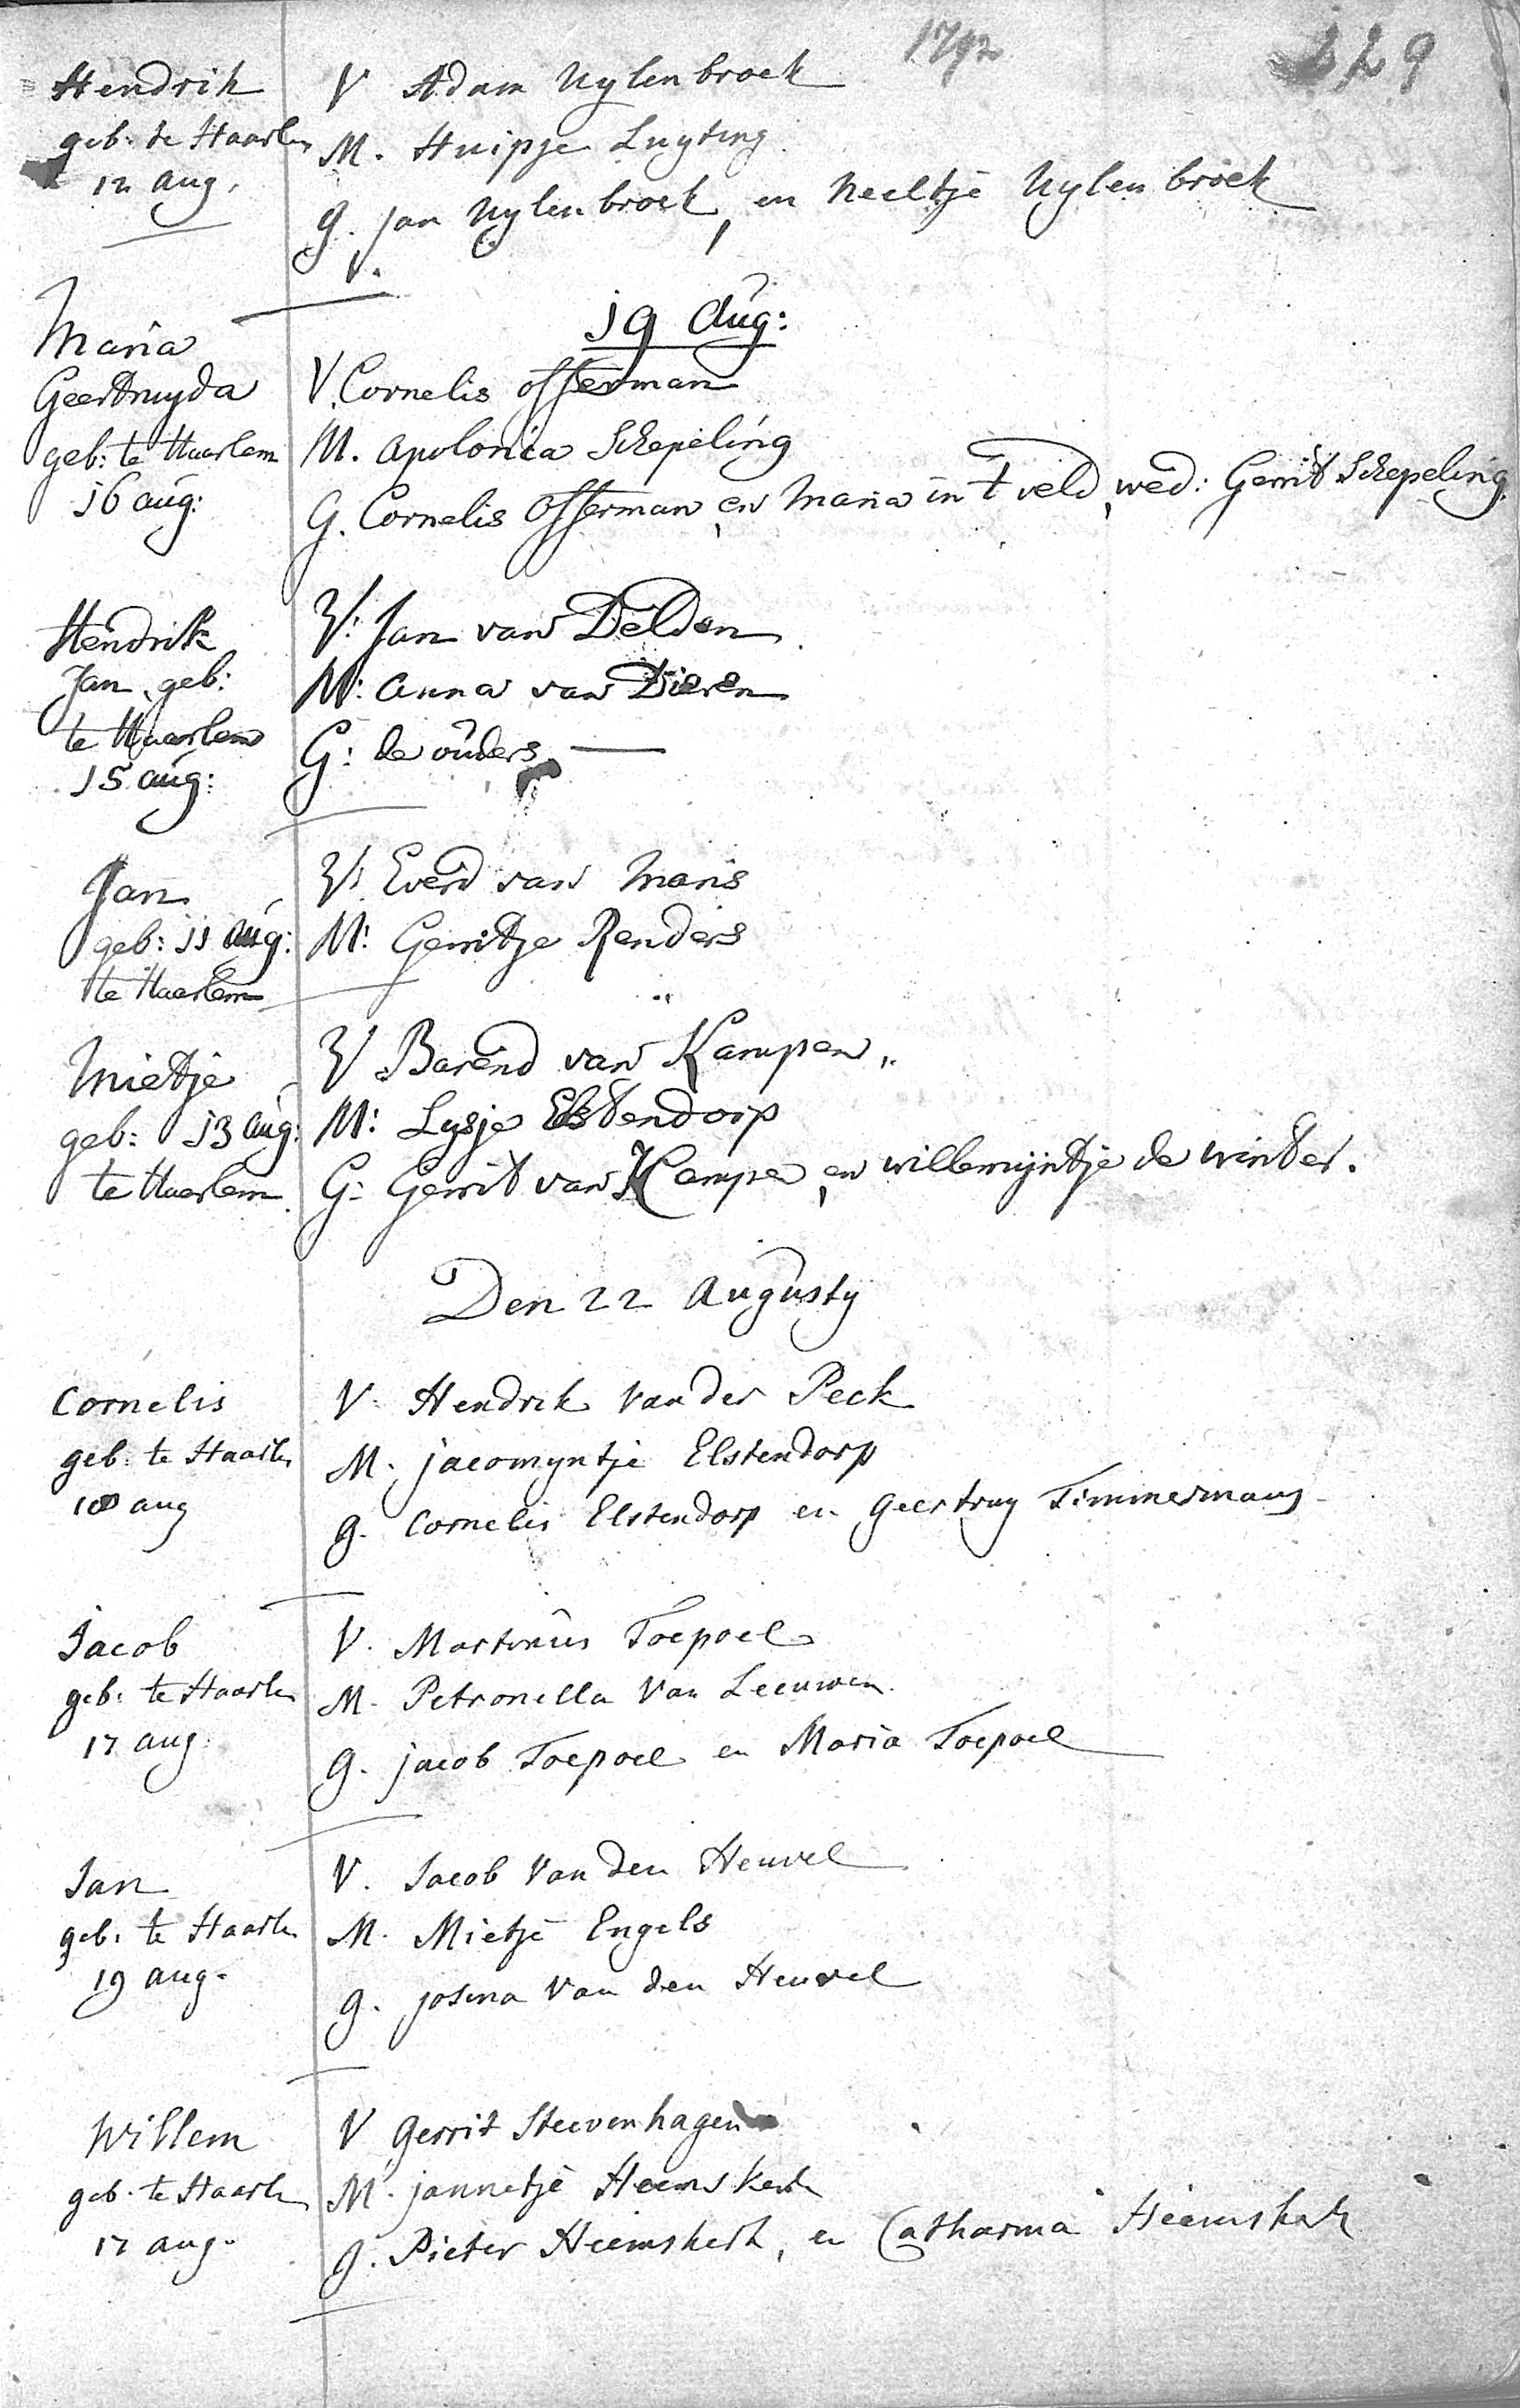 1792
229
Hendrik
geb: te Haarlem
12 aug.
V Adam Uylenbroek
M. Huipje Luyting
g. Jan Uylenbroek, en Neeltje Uylenbroek
V.
19 Aug:
Maria
Geertruyda
geb: te Haarlem
16 aug:
V. Cornelis Offerman
M. Apolonica Schepeling
G. Cornelis Offerman, en Maria in t veld, wed: Gerrit Schepeling
Hendrik
Jan, geb:
te Haarlem
15 aug:
V: Jan van Delden
M: Anna van Dieren
G: de ouders
Jan
geb: 11 aug:
te Haarlem
V: Everd van Maris
M: Gerritje Renders
Mietje
geb: 13 aug:
te Haarlem
V Barend van Kampen
M: Lysje Elstendorp
G: Gerrit van Kampen, en willemijntje de winter.
Den 22 Augusty
Cornelis
geb: te Haarlem
18 aug
V. Hendrik Van der Peck
M. jacomyntje Elstendorp
g. Cornelis Elstendorp en Geertruy Timmermans
Jacob
geb: te Haarlem
17 aug.
V. Martinus Toepoel
M. Petronella Van Leeuwen
g. jacob Toepoel en Maria Toepoel
Jan
geb: te Haarlem
19 aug.
V. Jacob Van den Heuvel
M. Mietje Engels
g. josina Van den Heuvel
Willem
geb. te Haarlem
17 aug.
V Gerrit Steevenhagen
M. jannetje Heemskerk
g. Pieter Heemskerk, en Catharina Heemskerk